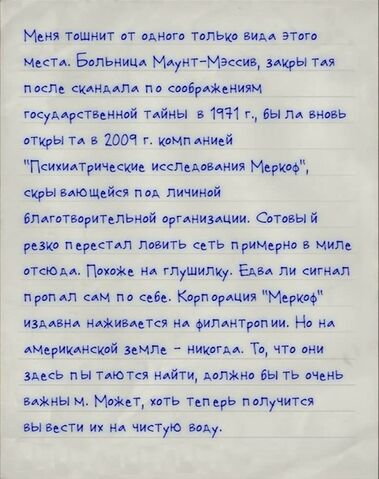 Меня тошнит от одного только вида этого
места. Больница Маунт-Мэссив, закрытая
после скандала по соображениям
государственной тайны в 1971 г., была вновь
открыта в 2009 г. компанией
"Психиатрические исследования Меркоф",
скрывающейся под личиной
благотворительной организации. Сотовый
резко перестал ловить сеть примерно в миле
отсюда. Похоже на глушилку. Едва ли сигнал
пропал сам по себе. Корпорация "Меркоф"
издавна наживается на филантропии. Но на
американской земле - никогда. То, что они
здесь пытаются найти, должно быть очень
важным. Может, хоть теперь получится
вывести их на чистую воду.